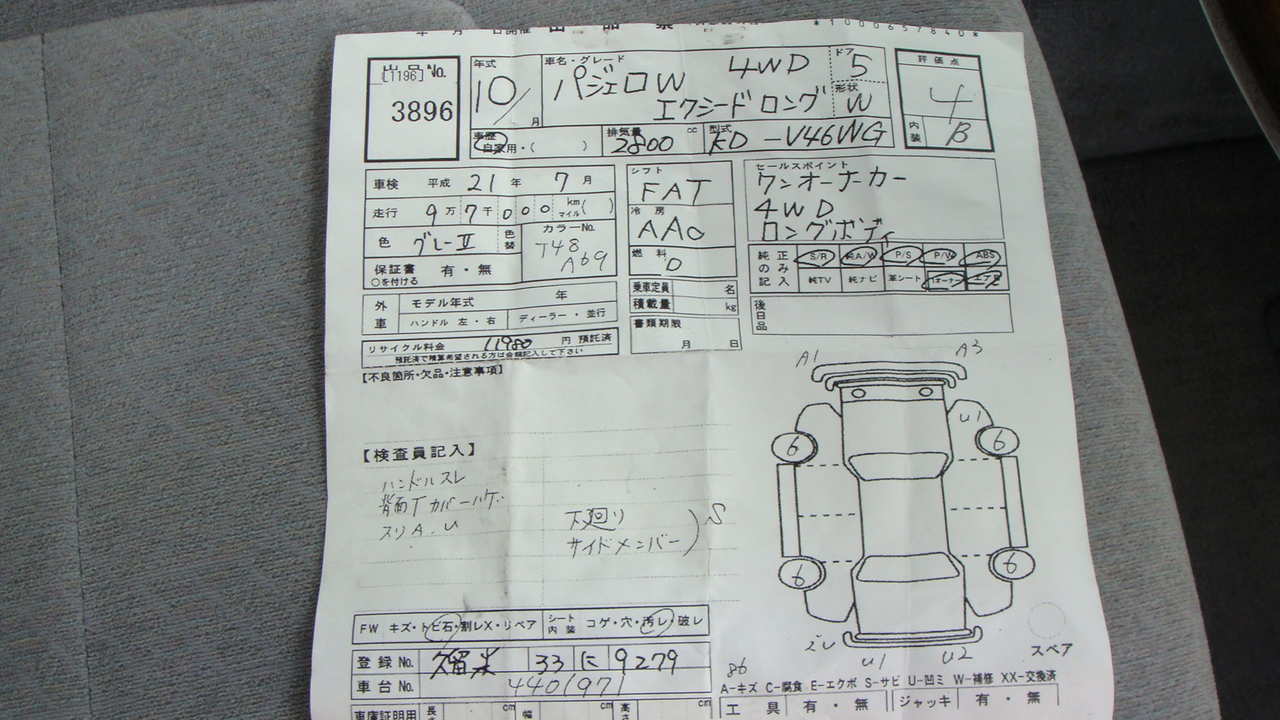 *1000657840*
出品No.
[1196]
3896
年式
10/
月
車名・グレード
パジェロW 4WD
エクシードロング
ドア
5
形状
W
評価点
4
内装 B
車歴
自家用・( )
排気量 2800 cc
型式 KD-V46WG
車検 平成 21 年 7 月
走行 9万7千000 km マイル( )
色 グレーII 色替
カラーNo.
T48
A69
保証書 有・無
○を付ける
シフト
FAT
冷房
AAC
燃料
D
乗車定員 名
積載量 kg
書類期限
月 日
セールスポイント
ワンオーナーカー
4WD
ロングボディ
純正のみ記入
S/R 純A/W P/S P/W ABS
純TV 純ナビ 革シート 1オーナー エアB
後日品
外車 モデル年式 年
ハンドル 左・右 ディーラー・並行
リサイクル料金 11980 円 預託済
預託済で積算希望される方は金額記入して下さい
【不良個所・欠品・注意事項】
【検査員記入】
ハンドルスレ
背面Tカバーハゲ
スリA.U
下廻り
サイドメンバー
S
A1 A3
U1
6 6
6 6
U1 U2
スペア
FW キズ・トビ石・割レX・リペア
シート内装 コゲ・穴・汚レ・破レ
登録No. 久留米 33 に 9279
車台No. 4401971
86
A-キズ C-腐食 E-エクボ S-サビ U-凹ミ W-補修 XX-交換済
工具 有・無 ジャッキ 有・無
車庫証明用 長さ cm 幅 cm 高さ cm